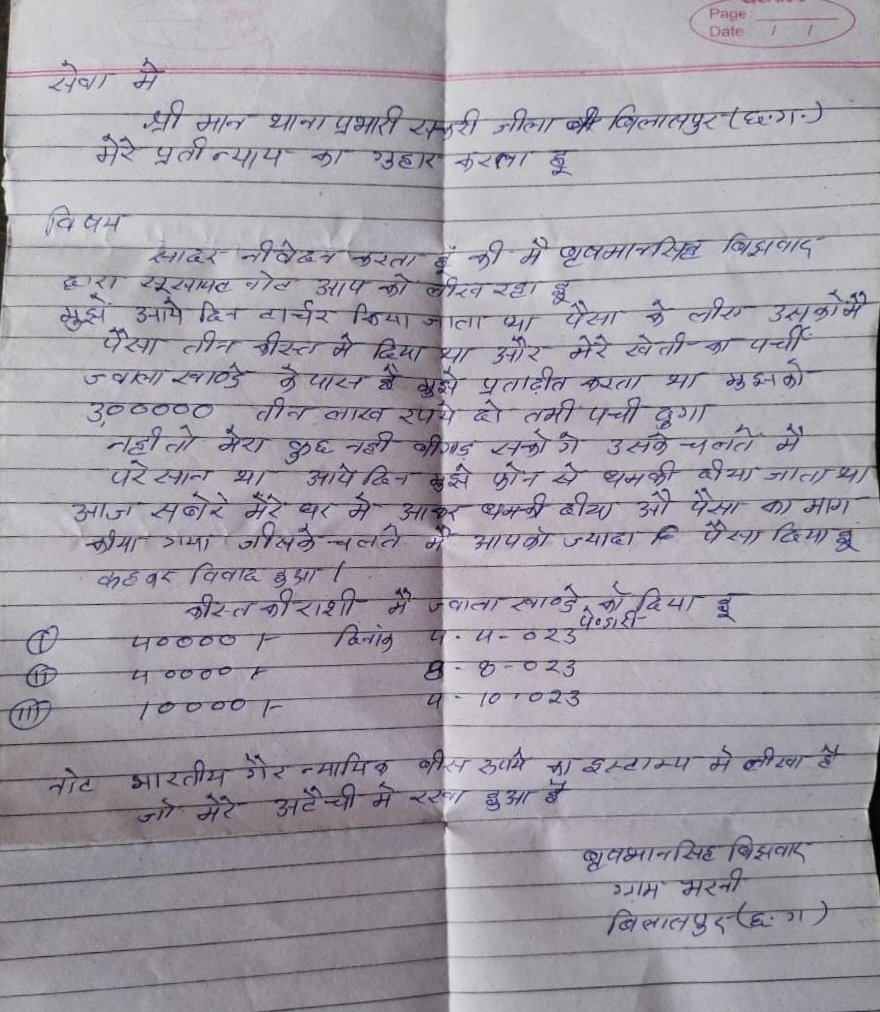 Page
Date / /
सेवा मे
श्री मान थाना प्रभारी सकरी जीला बिलासपुर (छ.ग.)
मेरे प्रती न्याय का गुहार करता हू
विषय
सादर नीवेदन करता हूं की मै बृषभानसिह बिझवाद
द्वारा नोट आप को लीख रहा हू
मुझे आये दिन टार्चर किया जाता था पैसा के लीए उसको मै
पैसा तीन कीस्त मे दिया था और मेरे खेती का पर्ची
ज्वाला खाण्डे के पास है मुझे प्रताढ़ीत करता था मुझको
3,00000 तीन लाख रूपये दो तभी पर्ची दुगा
नही तो मेरा कुछ नही बीगाड़ सको गे उसके चलते मै
परेसान था आये दिन मुझे फोन से धमकी दीया जाता था
आज सबेरे मेरे घर मे आकर धमकी दीया औ पैसा का माग
कीया गया जीसके चलते मै आपको ज्यादा पैसा दिया हू
कहकर विवाद हुआ।
कीस्त की राशी मै ज्वाला खाण्डे को दिया हू
पेन्डारी
(I) 50000/- दिनांक 5-5-023
(II) 50000/- 8-8-023
(III) 10000/- 5.10.023
नोट भारतीय गैर न्यायिक बीस रूपये का इस्टाम्प मे लीखा है
जो मेरे अटैची मे रखा हुआ है
बृषभानसिह बिझवाद
ग्राम भरनी
बिलासपुर (छ.ग)